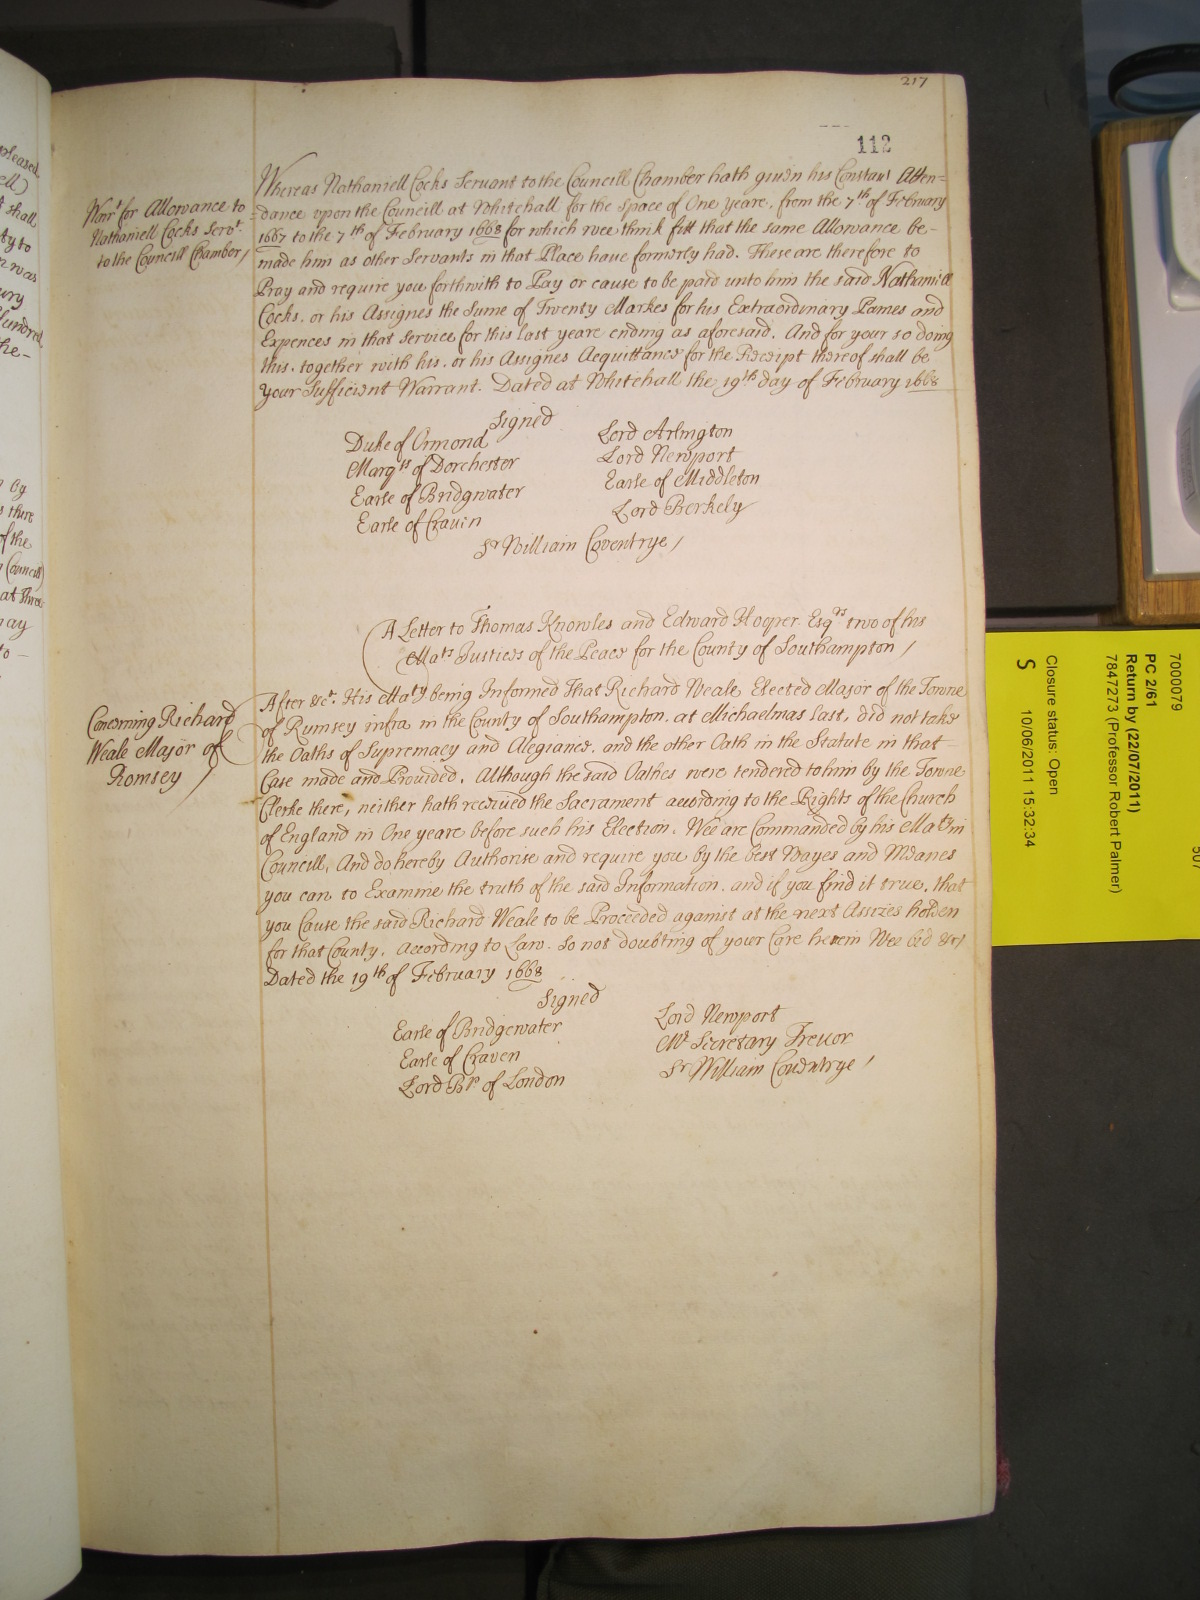 217
112
Warrt for Allowance to
Nathaniell Cocks Servt
to the Councill Chamber/
Whereas Nathaniell Cocks Servant to the Councill Chamber hath given his Constant Atten=
=dance upon the Councill at Whitehall for the space of One yeare, from the 7th of February
1667 to the 7th of February 1668 for which wee think fitt that the same Allowance be-
made him as other Servants in that Place have formerly had. These are therefore to
Pray and require you forthwith to Pay or cause to be paid unto him the said Nathaniell
Cocks, or his Assignes the Sume of Twenty Markes for his Extraordinary Paines and
Expences in that service for this last yeare ending as aforesaid. And for your so doing
this, together with his, or his Assignes Acquittance for the Receipt thereof shall be
your Sufficient Warrant. Dated at Whitehall the 19th day of February 1668
Signed
Duke of Ormond
Marqis of Dorchester
Earle of Bridgwater
Earle of Craven
Lord Arlington
Lord Newport
Earle of Middleton
Lord Berkely
Sr William Coventrye/
A Letter to Thomas Knowles and Edward Hooper Esqrs two of his
Mats Justices of the Peace for the County of Southampton /
Concerning Richard
Weale Major of
Romsey /
After &ct. His Maty being Informed That Richard Weale Elected Major of the Towne
of Rumsey infra in the County of Southampton, at Michaelmas last, did not take
the Oaths of Supremacy and Alegiance, and the other Oath in the Statute in that
Case made and Provided, Although the said Oathes were tendered to him by the Towne
Clerke there, neither hath received the Sacrament according to the Rights of the Church
of England in One yeare before such his Election. Wee are Commanded by his Maty in
Councill, And do hereby Authorise and require you by the best Wayes and Meanes
you can to Examine the truth of the said Information, and if you find it true, that
you Cause the said Richard Weale to be Proceeded against at the next Assizes holden
for that County, According to Law. So not doubting of your Care herein Wee bid &c/
Dated the 19th of February 1668
Signed
Earle of Bridgewater
Earle of Craven
Lord Bp of London
Lord Newport
Mr Secretary Trevor
Sr William Coventrye /
7000079
PC 2/61
Return by (22/07/2011)
7847273 (Professor Robert Palmer)
Closure status: Open
S 10/06/2011 15:32:34